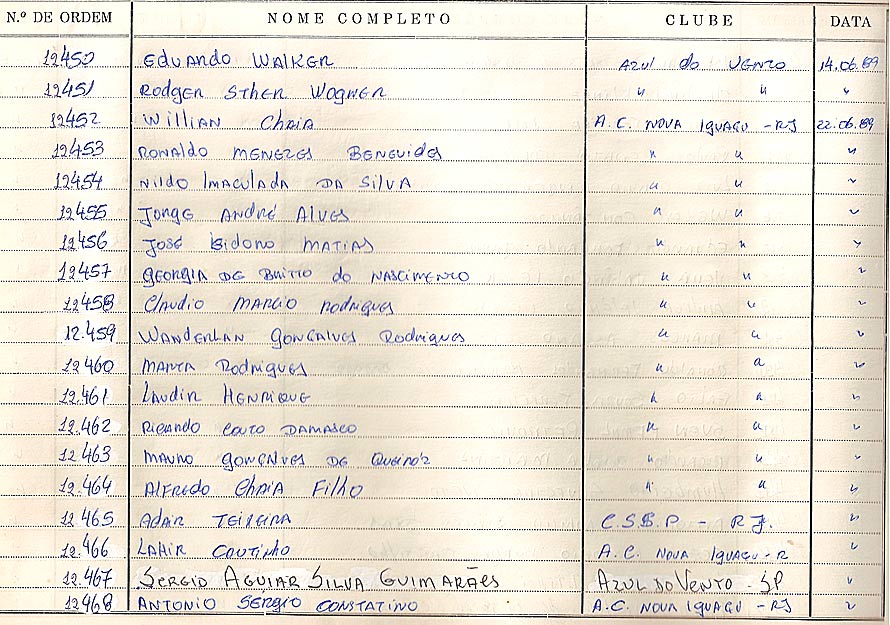 N.º DE ORDEM NOME COMPLETO CLUBE DATA
12450 Eduardo WALKER AZUL do VENTO 14.06.89
12451 RODGER STHER WAGNER " " "
12452 Willian Chaia A.C. NOVA IGUAÇU - RJ 22.06.89
12453 RONALDO MENEZES BENEVIDES " " "
12454 Nildo Imaculada DA Silva " " "
12455 Jorge André Alves " " "
12456 José Isidoro MATIAS " " "
12457 GEORGIA DE BRITTO do NASCIMENTO " " "
12458 Claudio MARCIO Rodrigues " " "
12.459 WANDERLAN GONÇALVES Rodrigues " " "
12460 Rodrigues " " "
12.461 Laudir HENRIQUE " " "
12.462 Ricardo Couto DAMASCO " " "
12.463 MAURO GONÇALVES DE Queiroz " " "
12.464 ALFREDO Chaia Filho " " "
12.465 ADAIR TEIXEIRA C.S.B.P - RJ. "
12.466 LAHIR COUTINHO A.C. NOVA IGUAÇU - R "
12.467 SERGIO AGUIAR SILVA GUIMARÃES AZUL DO VENTO - SP "
12468 ANTONIO SÉRGIO CONSTATINO A.C. NOVA IGUAÇU - RJ "